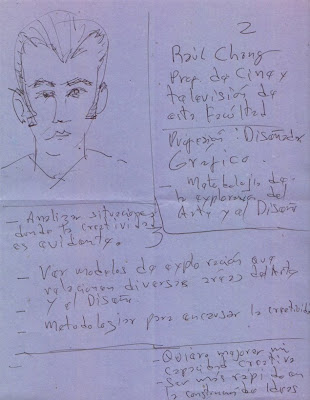 2
Raúl Chang
Prof. de Cine y
televisión de
esta Facultad
Profesión: Diseñador
Gráfico.
- Metodología de
la exploración del
Arte y el Diseño
- Analizar situaciones
donde la creatividad
es evidente.
3
- Ver modelos de exploración que
relacionen diversas áreas del Arte
y el Diseño
- Metodologías para encausar la creatividad
- Quiero mejorar mi
capacidad creativa
ser más rápido en
la construcción de Ideas